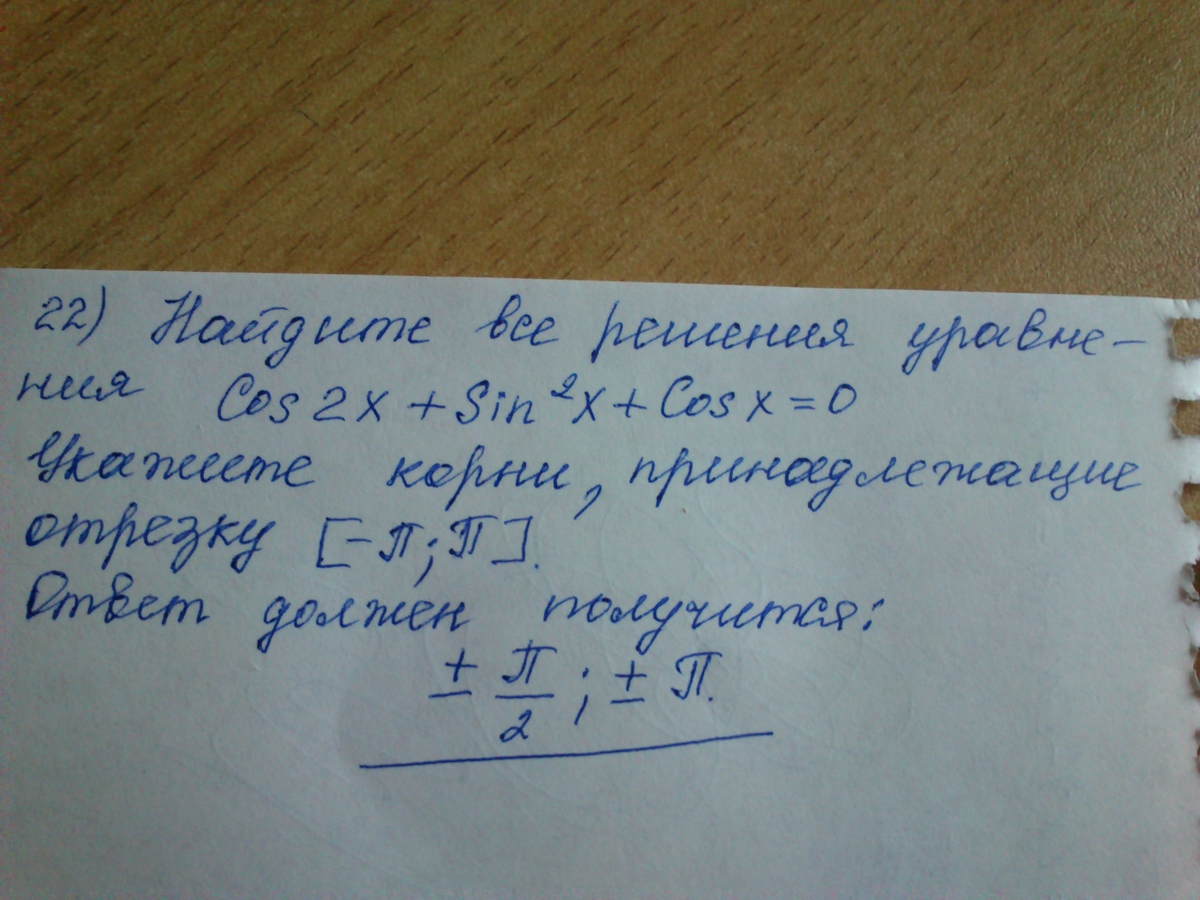 22) Найдите все решения уравне-
ния Cos 2x + Sin²x + Cos x = 0
Укажите корни, принадлежащие
отрезку [-П; П].
Ответ должен получится:
± П/2 ; ± П.